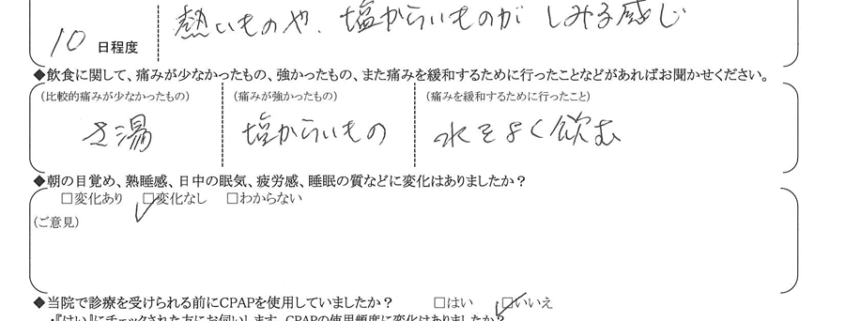 熱いものや、塩からいものが しみる感じ
10 日程度
◆飲食に関して、痛みが少なかったもの、強かったもの、また痛みを緩和するために行ったことなどがあればお聞かせください。
(比較的痛みが少なかったもの) (痛みが強かったもの) (痛みを緩和するために行ったこと)
さ湯 塩からいもの 水をよく飲む
◆朝の目覚め、熟睡感、日中の眠気、疲労感、睡眠の質などに変化はありましたか？
□変化あり ☑変化なし □わからない
(ご意見)
◆当院で診療を受けられる前にCPAPを使用していましたか？ □はい ☑いいえ
・『はい』にチェックされた方にお伺いします。CPAPの使用頻度に変化はありましたか？